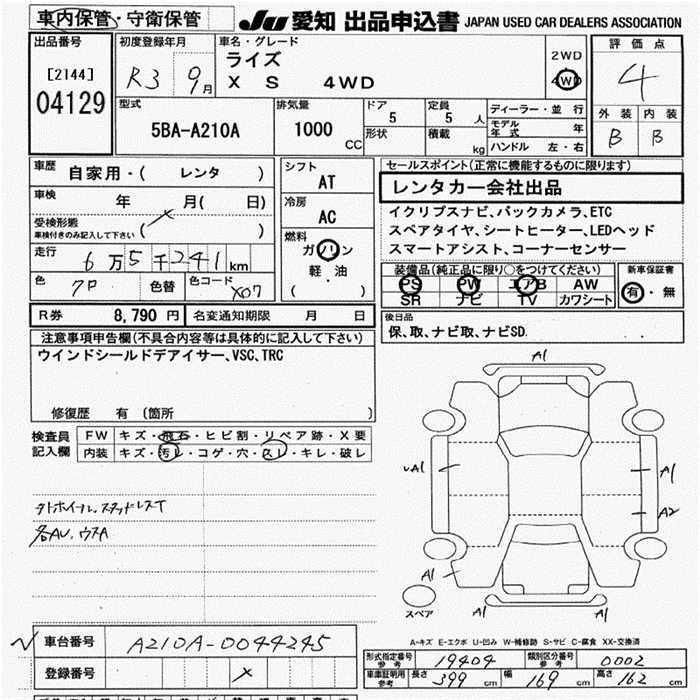 車内保管・守衛保管
JU 愛知 出品申込書 JAPAN USED CAR DEALERS ASSOCIATION
出品番号
[2144]
04129
初度登録年月
R3 9月
車名・グレード
ライズ
X S 4WD
2WD
4WD
評価点
4
外装 内装
B B
型式
5BA-A210A
排気量
1000 CC
ドア
5
形状
定員
5 人
積載
kg
ディーラー・並行
モデル年式 年
ハンドル 左・右
車歴 自家用・( レンタ )
車検 年 月( 日)
受検形態
車検付きのみ記入して下さい ( )
走行 6万5千241km
色 クロ 色替 色コード X07
シフト
AT
冷房
AC
燃料
ガソリン
軽・油
( )
セールスポイント(正常に機能するものに限ります)
レンタカー会社出品
イクリプスナビ、バックカメラ、ETC
スペアタイヤ、シートヒーター、LEDヘッド
スマートアシスト、コーナーセンサー
装備品(純正品に限り○をつけてください)
PS PW エアB AW
SR ナビ TV カワシート
新車保証書
有・無
R券 8,790 円 名変通知期限 月 日
後日品
保、取、ナビ取、ナビSD.
注意事項申告欄(不具合内容等は具体的に記入して下さい)
ウインドシールドデアイサー、VSC、TRC
修復歴 有 (箇所 )
検査員記入欄
FW キズ・飛石・ヒビ割・リペア跡・X要
内装 キズ・汚レ・コゲ・穴・スレ・キレ・破レ
外ホイール、スタッドレスT
各AU、ウスA
A1
A1
A1
A2
A1
A1
スペア
A-キズ E-エクボ U-凹み W-補修跡 S-サビ C-腐食 XX-交換済
車台番号 A210A-0044245
登録番号
形式指定番号 参考 19404 類別区分番号 参考 0002
車庫証明用 参考 長さ 399 cm 幅 169 cm 高さ 162 cm